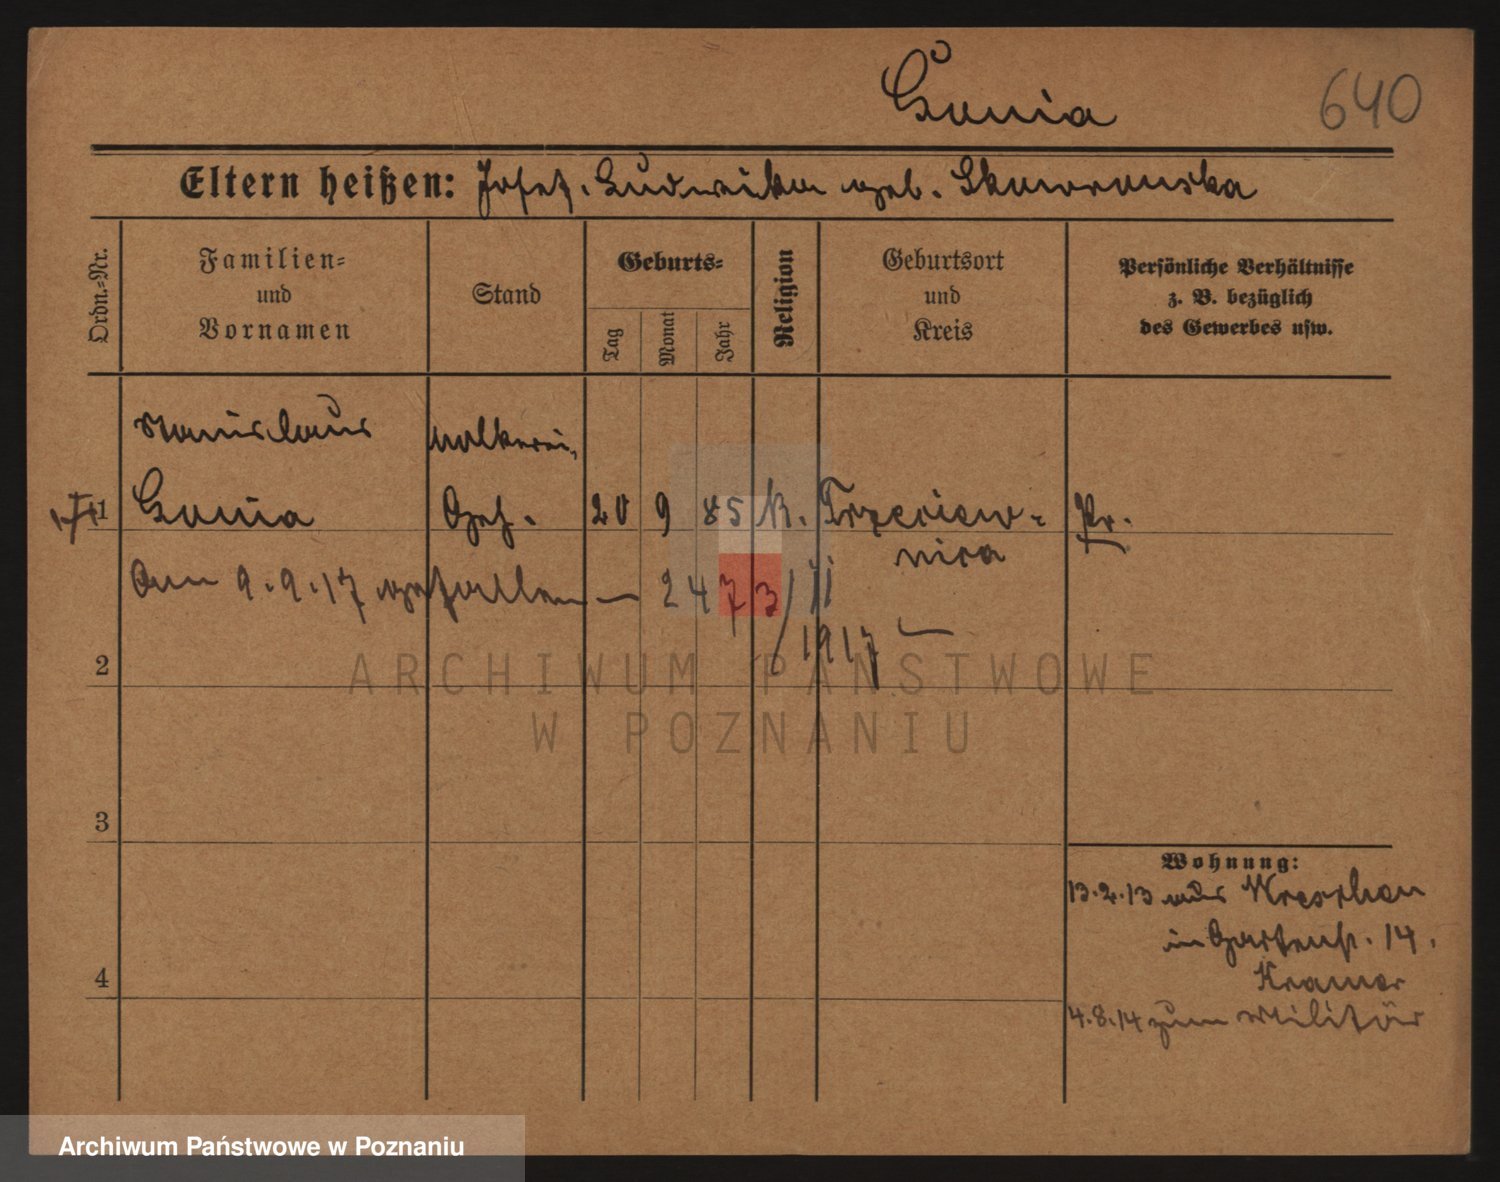 Gunia
640
Eltern heißen: Josef. Ludwika geb. Skowronska
Ordn.=Nr.
Familien=
und
Vornamen
Stand
Geburts=
Tag
Monat
Jahr
Religion
Geburtsort
und
Kreis
Persönliche Verhältnisse
z. B. bezüglich
des Gewerbes usw.
Stanislaus Molkerei
1 Gunia Geh. 20 9 85 K. Trzeciew=
nica
Pr.
Am 9.9.17 gefallen — 2473/II
1917
2
ARCHIWUM PAŃSTWOWE
W POZNANIU
3
Wohnung:
13.2.13 aus
in Gartenstr. 14.
Kramer
4
4.8.14 zum Militär
Archiwum Państwowe w Poznaniu